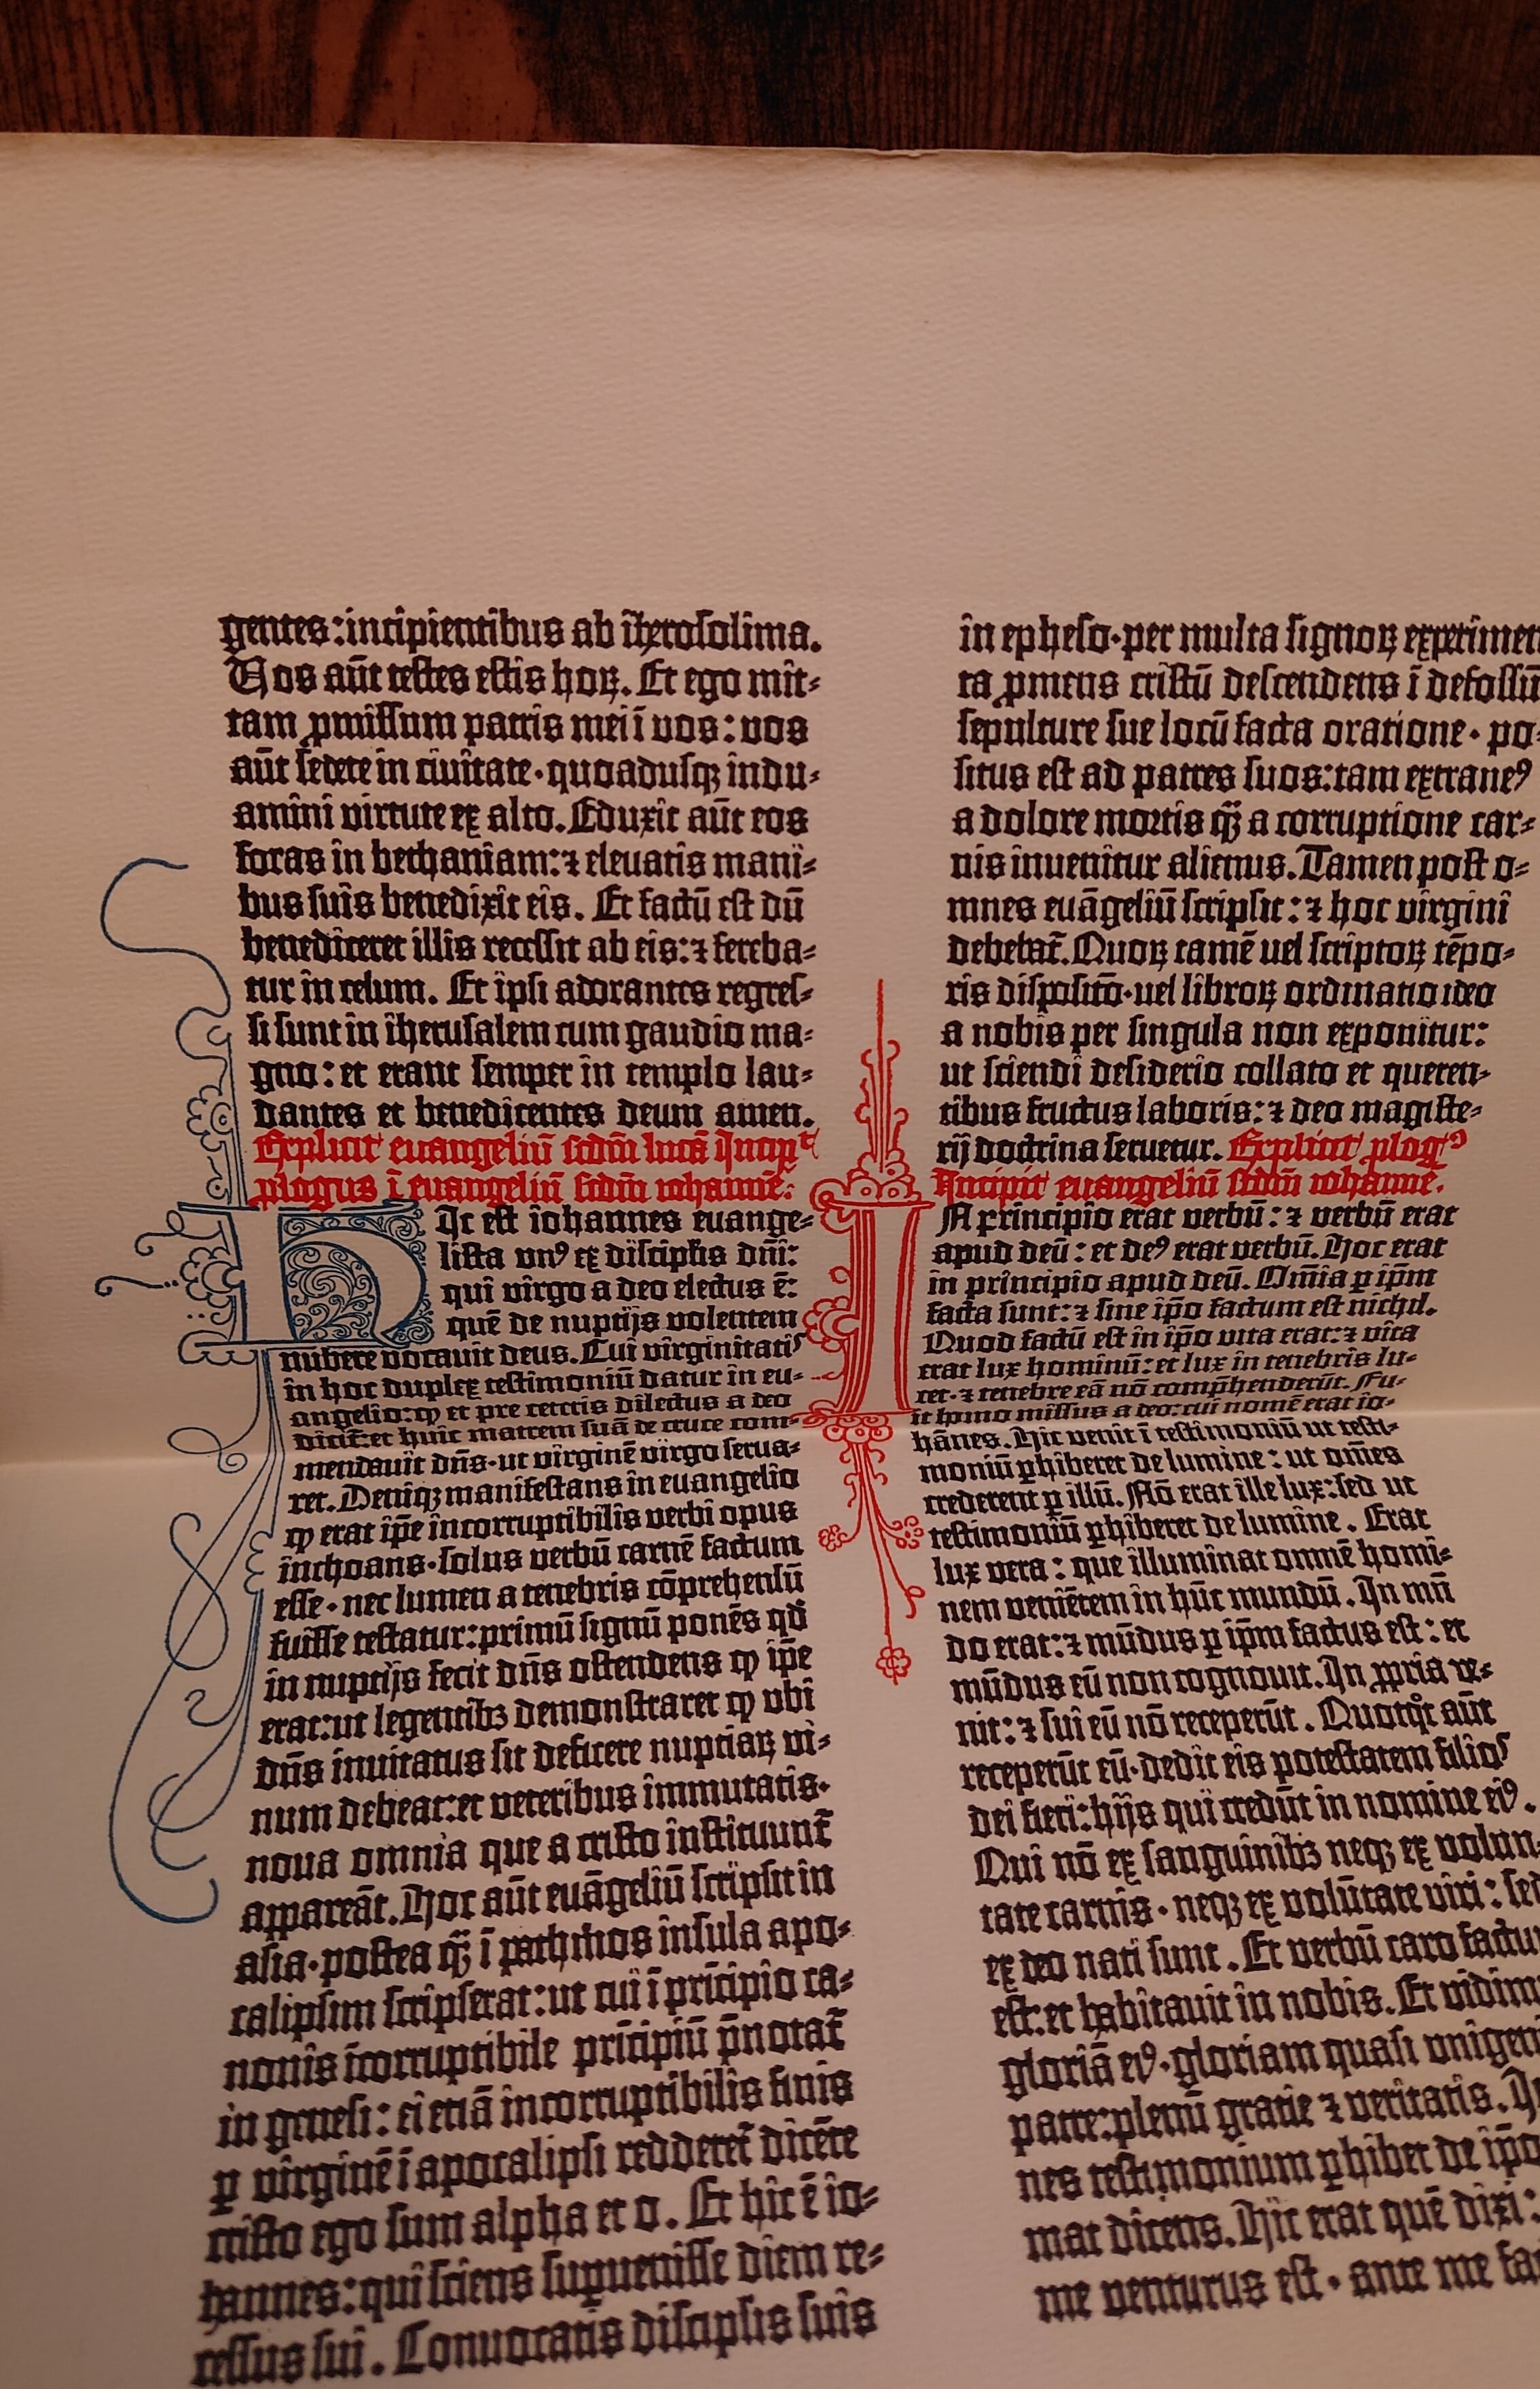 gentes: incipientibus ab iherosolima.
Vos aūt testes estis hoꝝ. Et ego mit⸗
tam ꝓmissum patris mei ī vos: vos
aūt sedete in civitate· quoadusqꝫ indu⸗
amini virtute ex alto. Eduxit aūt eos
foras in bethaniam: ⁊ elevatis mani⸗
bus suis benedixit eis. Et factū est dū
benediceret illis recessit ab eis: ⁊ fereba⸗
tur in celum. Et ipsi adorantes regres⸗
si sunt in iherusalem cum gaudio ma⸗
gno: et erant semper in templo lau⸗
dantes et benedicentes deum amen.
Explicit euangeliū scdm̄ lucā Incipᵗ
ꝓlogus ī euangeliū scdm̄ iohannē.
HIc est iohannes euange⸗
lista unꝰ ex discipulis dn̄i:
qui virgo a deo electus ē:
quē de nuptijs volentem
nubere vocavit deus. Cui virginitatis
in hoc duplex testimoniū datur in eu⸗
angelio: ꝙ et pre ceteris dilectus a deo
dicit̄: et huic matrem suā de cruce com⸗
mendauit dn̄s· ut virginē virgo serua⸗
ret. Deniqꝫ manifestans in euangelio
ꝙ erat ip̄e incorruptibilis verbi opus
inchoans· solus verbū carnē factum
esse· nec lumen a tenebris cōprehensū
fuisse testatur: primū signū ponēs qd̄
in nuptijs fecit dn̄s ostendens ꝙ ip̄e
erat: ut legentibꝫ demonstraret ꝙ ubi
dn̄s inuitatus sit deficere nuptiaꝝ vi⸗
num debeat: et veteribus immutatis·
noua omnia que a cristo instituunt̄
appareāt. Hoc aūt euāgeliū scripsit in
asia· postea qȝ̄ ī pathmos insula apo⸗
calipsim scripserat: ut cui ī prīcipio ca⸗
nonis īcorruptibile prīcipiū p̄notat̄
in genesi: ei etiā incorruptibilis finis
ꝑ virginē ī apocalipsi redderet̄ dicēte
cristo ego sum alpha et o. Et hic ē io⸗
hannes: qui sciens suꝑuenisse diem re⸗
cessus sui. Conuocatis discipulis suis
in epheso· per multa signoꝝ experimen
ta ꝓmens cristū descendens ī defossū
sepulture sue locū facta oratione· po⸗
situs est ad patres suos: tam extraneꝰ
a dolore mortis qȝ̄ a corruptione car⸗
nis inuenitur alienus. Tamen post o⸗
mnes euāgeliū scripsit: ⁊ hoc virgini
debebat̄. Quoꝝ tamē uel scriptoꝝ tēpo⸗
ris disposito̅· uel libroꝝ ordinatio ideo
a nobis per singula non exponitur:
ut sciendi desiderio collato et queren⸗
tibus fructus laboris: ⁊ deo magiste⸗
rij doctrina seruetur. Explicit ꝓlogꝰ
Incipit euangeliū scdm̄ iohannē.
IN principio erat verbū: ⁊ verbū erat
apud deū: et deꝰ erat verbū. Hoc erat
in principio apud deū. Om̄ia ꝑ ip̄m
facta sunt: ⁊ sine ip̄o factum est nichil.
Quod factū est in ip̄o vita erat: ⁊ vita
erat lux hominū: et lux in tenebris lu⸗
cet· ⁊ tenebre eā nō comp̄henderūt. Fu⸗
it homo missus a deo: cui nomē erat io⸗
hānes. Hic venit ī testimoniū ut testi⸗
moniū ꝑhiberet de lumine: ut om̄es
crederent ꝑ illū. Nō erat ille lux: sed ut
testimoniū ꝑhiberet de lumine. Erat
lux vera: que illuminat omnē homi⸗
nem veniētem in hūc mundū. In mū
do erat: ⁊ mūdus ꝑ ip̄m factus est: et
mūdus eū non cognouit. In ꝓpria ve⸗
nit: ⁊ sui eū nō receperūt. Quotqͦt aūt
receperūt eū· dedit eis potestatem filios
dei fieri: hijs qui credūt in nomine eiꝰ.
Qui nō ex sanguinibꝫ neqꝫ ex volun
tate carnis· neqꝫ ex volūtate viri: sed
ex deo nati sunt. Et verbū caro factū
est: et habitauit in nobis. Et vidim
gloriā eiꝰ· gloriam quasi unigeni
patre: plenū gratie ⁊ veritatis.
nes testimonium ꝑhibet de ip̄o
mat dicens. Hic erat quē dixi:
me venturus est· ante me fa